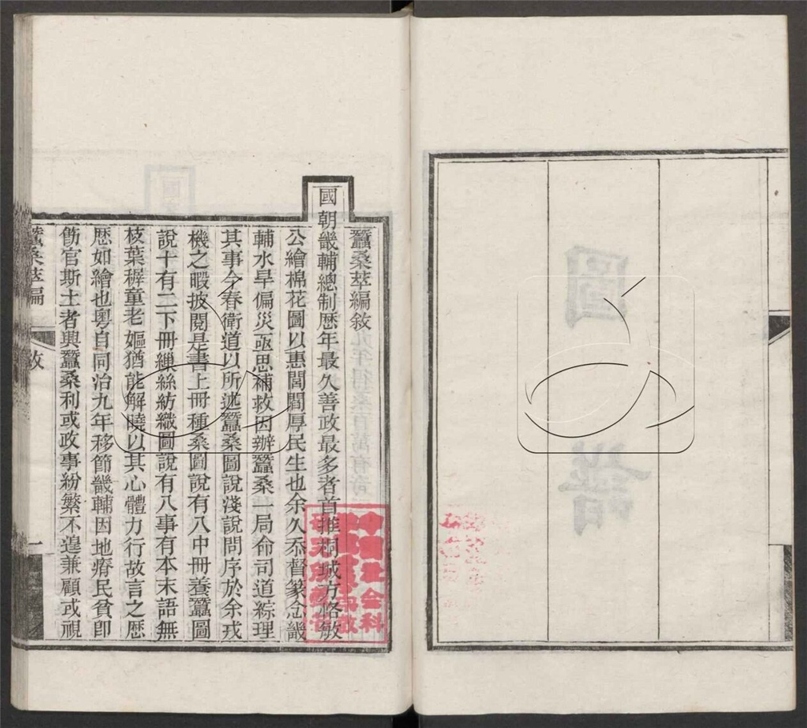 蠶桑萃編敘
國朝畿輔總制歷年最久善政最多者首推桐城方恪敏
公繪棉花圖以惠閭閻厚民生也余久忝督篆念畿
輔水旱偏災亟思補救因辦蠶桑一局命司道綜理
其事今春衛道以所述蠶桑圖說淺說問序於余戎
機之暇披閱是書上冊種桑圖說有八中冊養蠶圖
說十有二下冊繅絲紡織圖說有八事有本末語無
枝葉稺童老嫗猶能解曉以其心體力行故言之歷
歷如繪也粵自同治九年移節畿輔因地瘠民貧即
飭官斯土者興蠶桑利或政事紛繁不遑兼顧或視
蠶桑萃編
敘
一